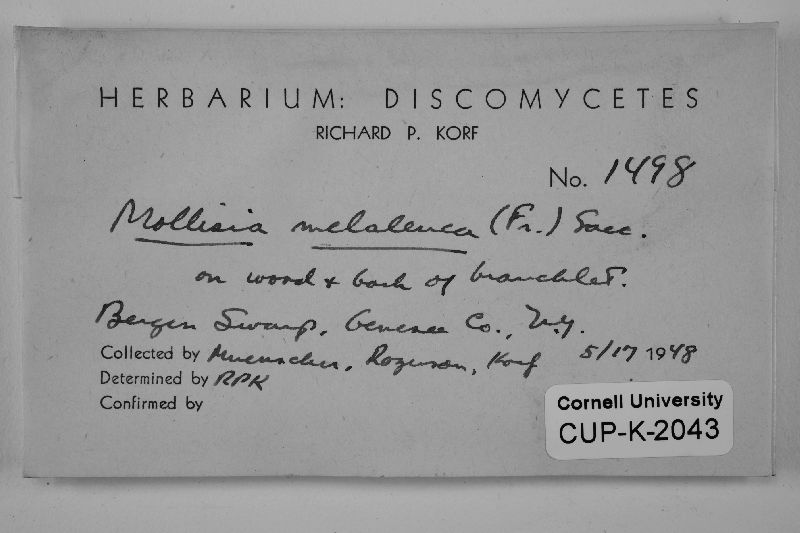 HERBARIUM: DISCOMYCETES
RICHARD P. KORF
No. 1498
Mollisia melaleuca (Fr.) Sacc.
on wood & bark of branchlet.
Bergen Swamp, Genesee Co., N.Y.
Collected by Muenscher, Rogerson, Korf 5/17 1948
Determined by RPK
Confirmed by
Cornell University
CUP-K-2043